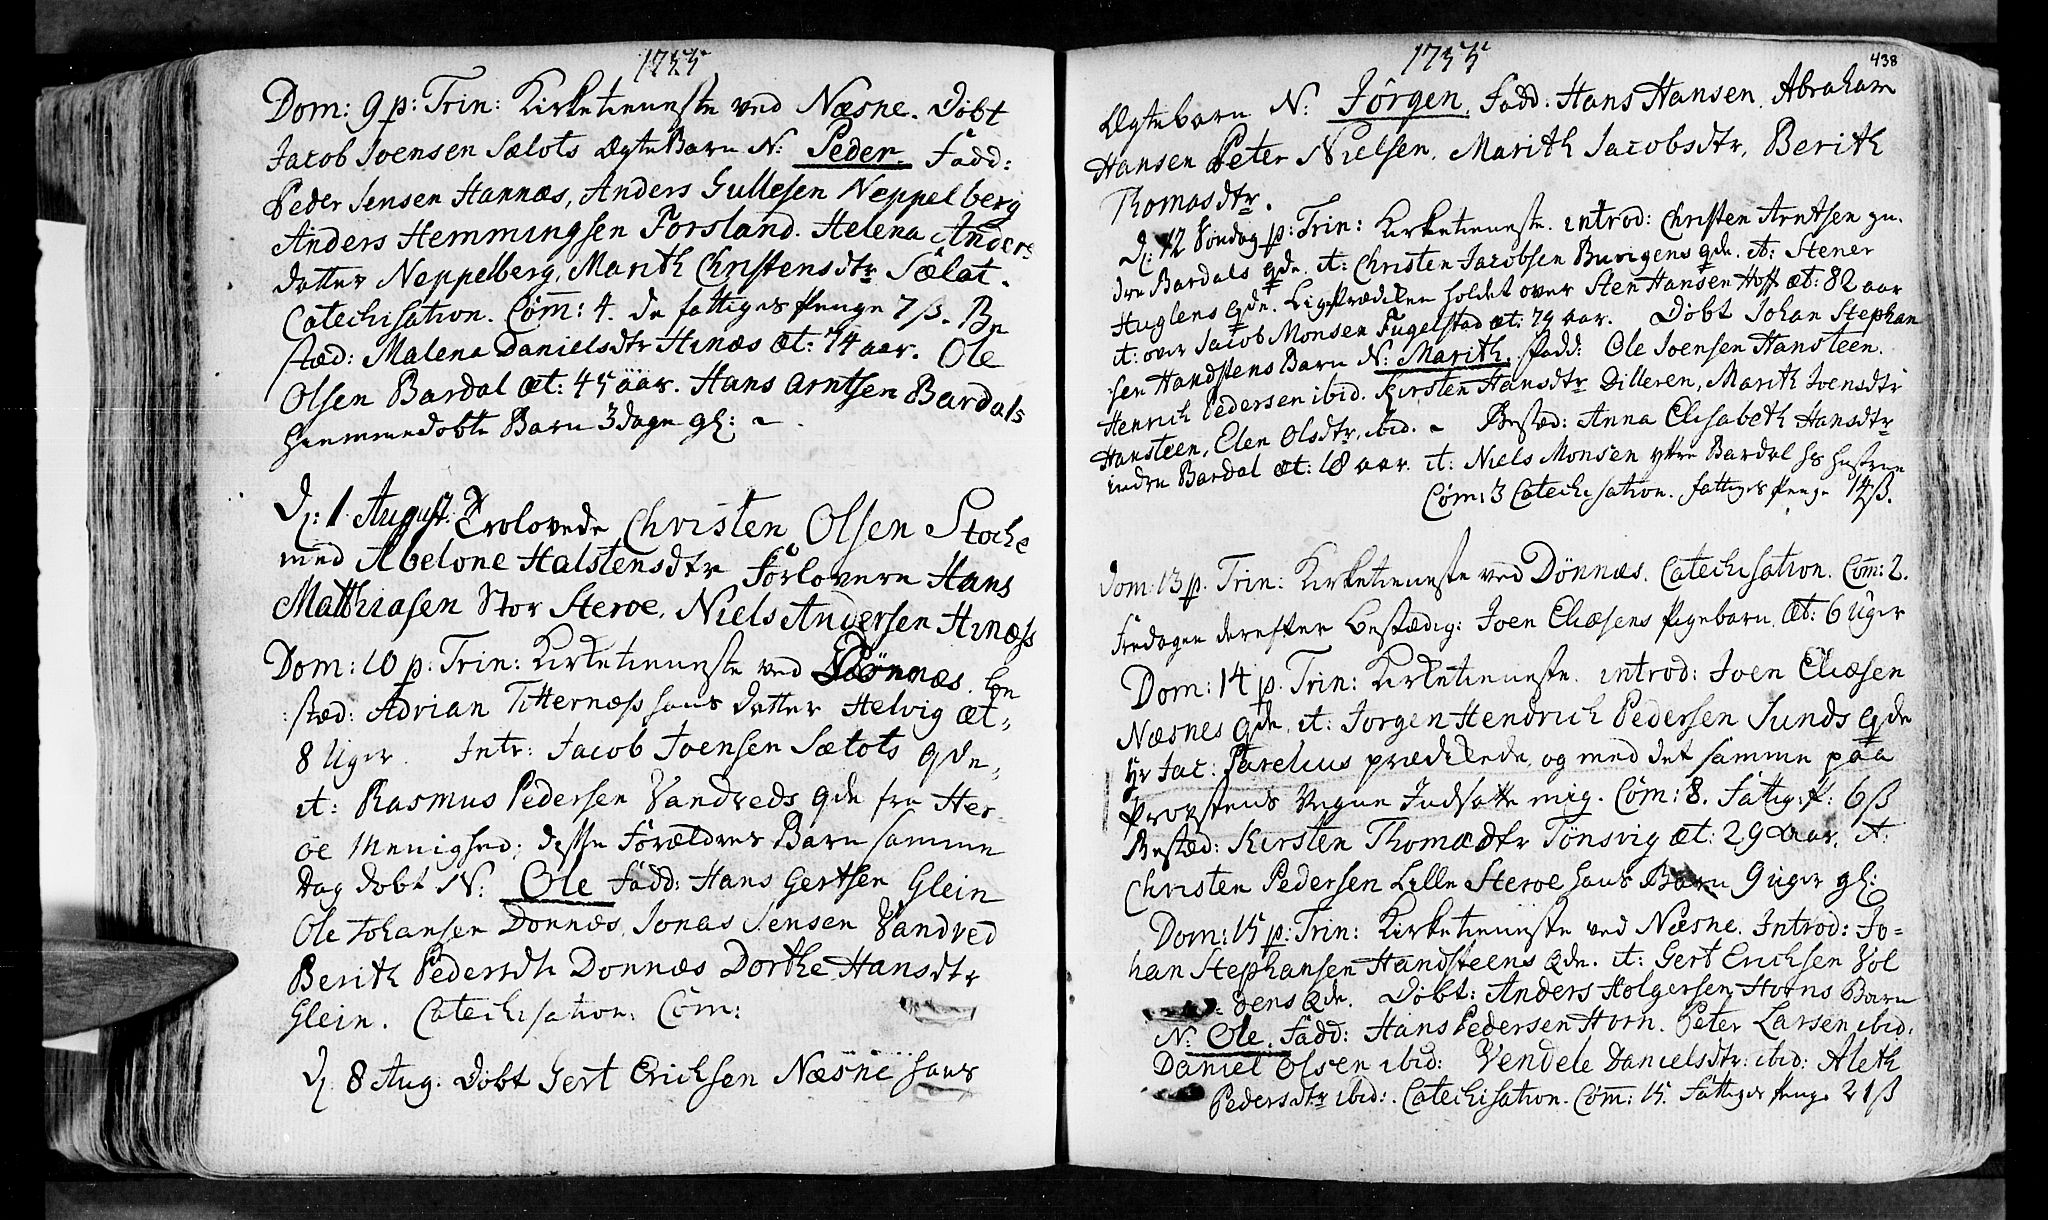 1755
Dom: 9 p: Trin: Kirketienneste ved Næsne. Döbt
Jacob Joensen Sælots ÆgteBarn N: Peder. Fadd:
Peder Jensen Hannæs, Anders Gullesen Neppelberg
Anders Hemmingsen Forsland. Helena Anders
datter Neppelberg, Marith Christensdtr Sælat.
Catechisation. Com̄: 4. de fattiges Penge 7 ß. Be
stæd: Malena Danielsdtr Hinæs æt: 74 aar. Ole
Olsen Bardal æt: 45 aar. Hans Arntsen Bardals
hiemmedöbte Barn 3 dage gl:
D: 1 August. Trolovede Christen Olsen Stoche
med Abelone Halstensdtr Forlovere Hans
Matthiasen Stor Steroe. Niels Andersen Hinæss
Dom: 10 p: Trin: Kirketienneste ved Dönnæs. be
stæd: Adrian Titternæss hans datter Helvig æt:
8 Uger. Intr: Jacob Joensen Sælots qde,
it: Rasmus Pedersen Vandveds qde fra Her
öe Menighed; desse Forældres Barn samme
Dag döbt N: Ole Fadd: Hans Gertsen Glein
Ole Johansen Donnæs, Jonas Jensen Vandved
Berith Pedersdtr Donnæs Dorthe Hansdtr
Glein. Catechisation. Com:
D: 8 Aug. Döbt Gert Erichsen Næsne hans
1755
438
Ægtebarn N: Jörgen. Fadd: Hans Hansen. Abraham
Hansen Peter Nielsen. Marith Jacobsdtr, Berith
Thomasdtr.
D: 12 Söndag p: Trin: Kirketienneste. introd: Christen Arntsen in
dre Bardals qde. it: Christen Jacobsen Buvigens qde. it: Stener
Huglens qde. Ligprædiken holdet over Sten Hansen Hoff æt: 82 aar
it: over Jacob Monsen Fugelstad æt: 79 aar. Döbt Johan Stephan
sen Handstens Barn N: Marith. Fadd: Ole Joensen Hansteen.
Henrich Pedersen ibid. Kirsten Hansdtr Dilleren, Marith Joensdtr
Hansteen, Elen Olsdtr, ibid. Bestæd: Anna Elisabeth Hansdtr
indre Bardal æt: 18 aar. it: Niels Monsen yttre Bardal hs hustrue
Com̄: 3 Catechisation. fattiges Penge 14 ß.
Dom: 13 p. Trin: Kirketienneste ved Dönnæs. Catechisation. Com: 2.
fredagen derefter bestædig: Joen Eliæsens Pigebarn. Æt: 6 Uger
Dom: 14 p. Trin: Kirketienneste. introd: Joen Eliæsen
Næsnes qde. it: Jorgen Hendrich Pedersen Sunds qde
Hr Jac: Parelius prædikede, og med det samme paa
Provstens Vegne Indsatte mig. Com: 8. Fattig: P: 6 ß
Bestæd: Kirsten Thomædtr Tönsvig æt: 29 aar. it:
Christen Pedersen Lille Steroe hans Barn 9 uger gl:
Dom: 15 p: Trin: Kirketienneste ved Næsne. Introd: Jo=
han Stephansen Handsteens qde. it: Gert Erichsen Vol
dens qde. Döbt: Anders Holgersen Horns Barn
N: Ole. Fadd: Hans Pedersen Horn. Peter Larsen ibid:
Daniel Olsen ibid: Vendele Danielsdtr: ibid: Aleth
Pedersdtr ibid:. Catechisation. Com̄: 15. Fattiges Peng. 21 ß